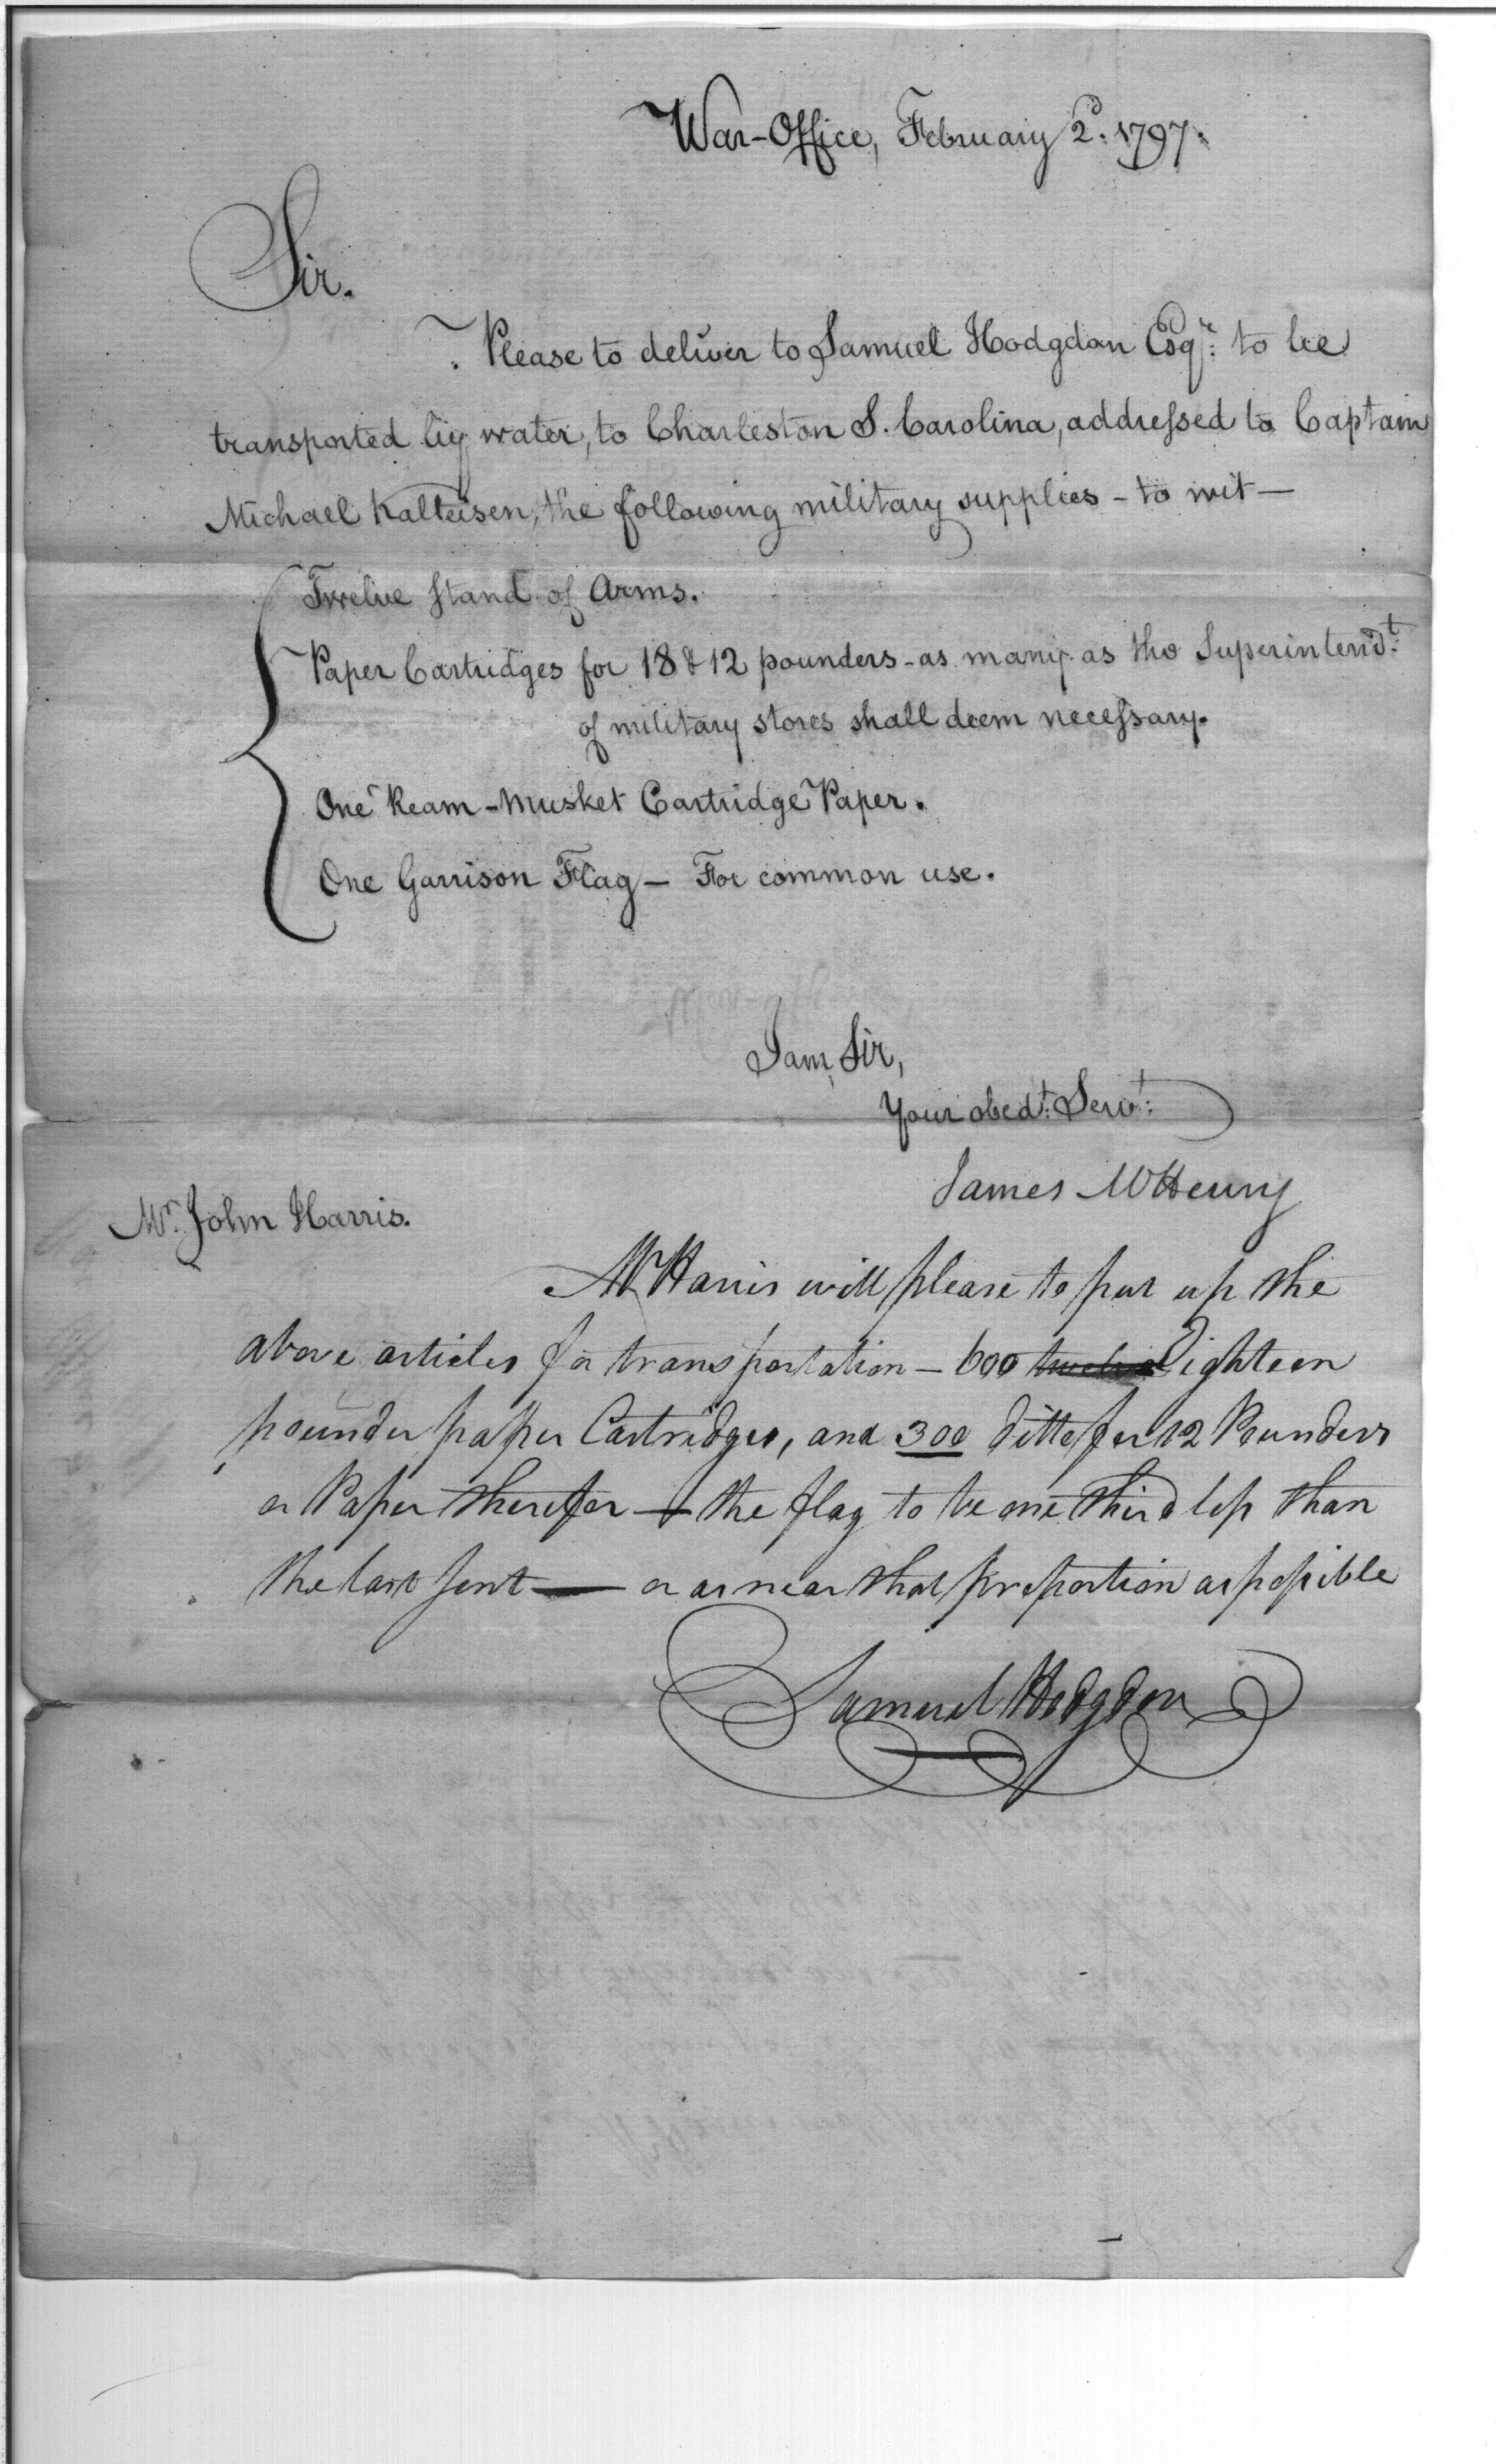 War-Office, February 2d. 1797.
Sir.
Please to deliver to Samuel Hodgdon Esqr: to be
transported by water, to Charleston S. Carolina, addressed to Captain
Michael Kalteisen, the following military supplies - to wit —
Twelve Stand of Arms.
Paper Cartridges for 18 & 12 pounders - as many as the Superintendt:
of military stores shall deem necessary.
One Ream - Musket Cartridge Paper.
One Garrison Flag — For common use.
I am, Sir,
Your obedt: Servt:
James McHenry
Mr. John Harris.
Mr Harris will please to put up the
above articles for transportation — 600 twelve Eighteen
pounder paper Cartridges, and 300 ditto for 12 Pounders
or Paper therefor — the flag to be one third less than
the last sent — or as near that proportion as possible
Samuel Hodgdon